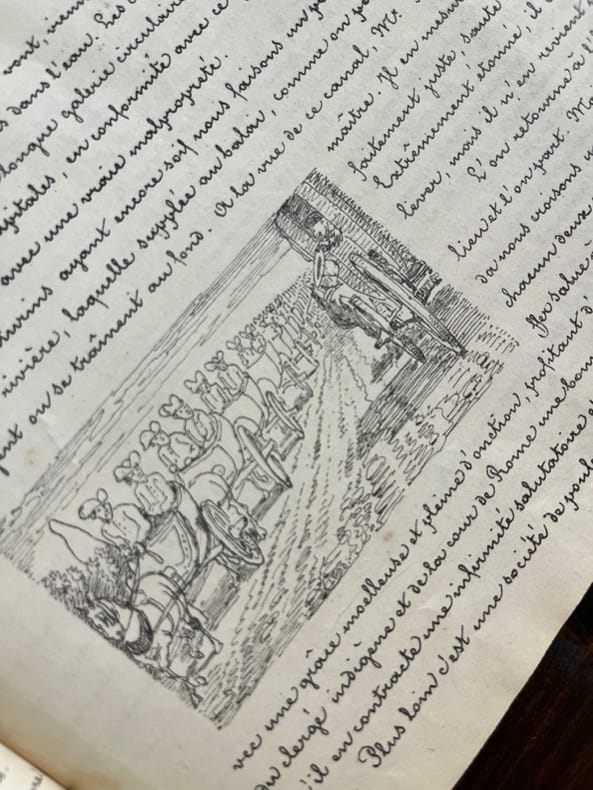 vont, vienn
s dans l'eau. Les
longue galerie circulaire
pitales, en conformité avec ce
avec une vraie malpropreté.
ivrins ayant encore soif nous faisons un
rivière, laquelle supplée au balai, comme on
ent ou se traînent au fond. A la vue de ce canal, Mr.
maître. Il en mesur
faitement juste, saute
Extrêmement étonné, il
lever, mais il n'en revient
L'on retourne à l'h
lieu et l'on part. Ma
da nous croisons
chacun deux
Ser salue
vec une grâce moelleuse et pleine d'onction, profitant d'
du clergé indigène et de la cour de Rome une bonn
'il en contracte une infirmité salutatoire
Plus loin c'est une société de